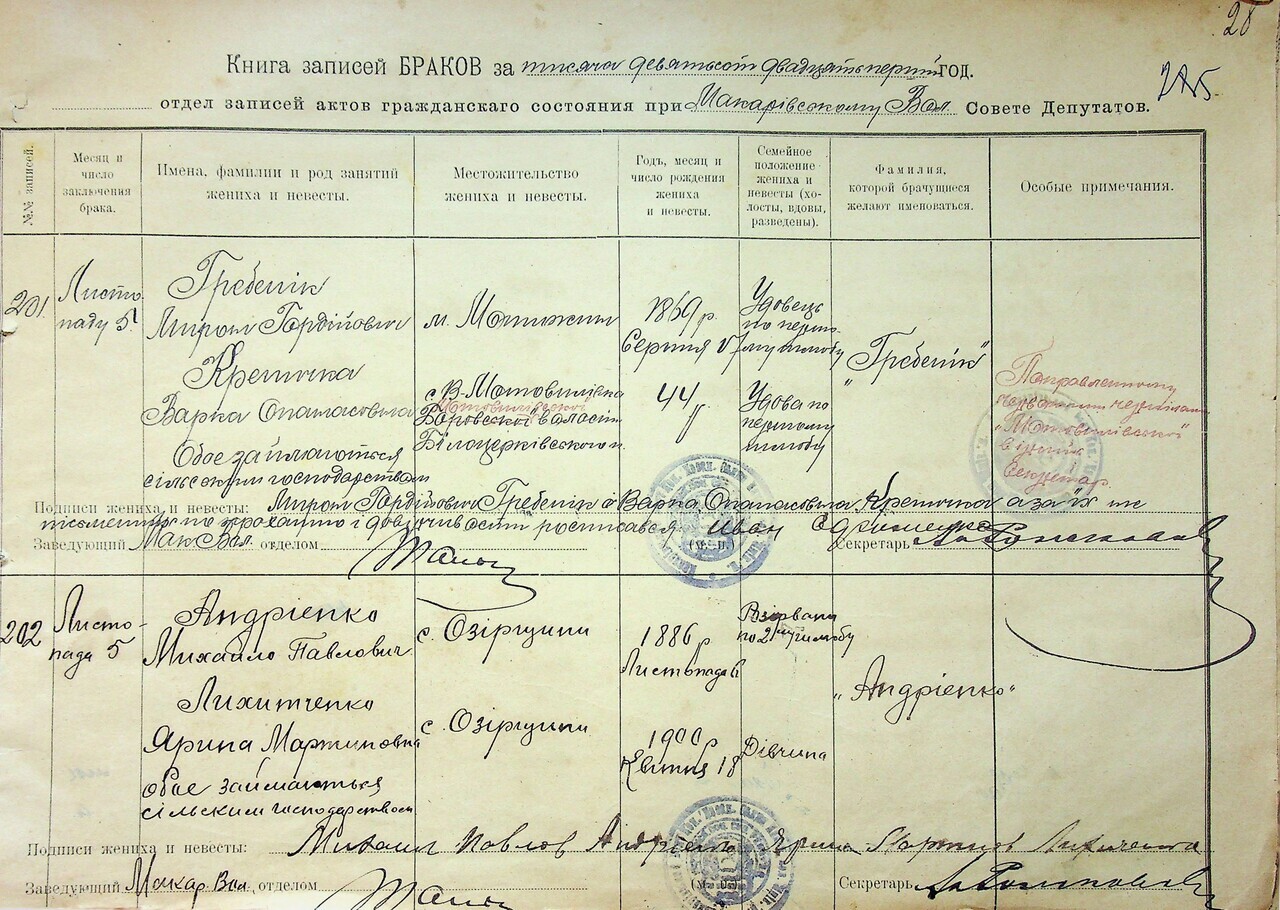 28
Книга записей БРАКОВ за тисяча девятьсот двадцать перший год.
225
отдел записей актов гражданскаго состояния при Макарівскому Вол. Совете Депутатов.
№№ записей.
Месяц и число заключения брака.
Имена, фамилии и род занятий жениха и невесты.
Местожительство жениха и невесты.
Годъ, месяц и число рождения жениха и невесты.
Семейное положение жениха и невесты (холосты, вдовы, разведены).
Фамилия, которой брачущиеся желают именоваться.
Особые примечания.
201
Листопаду 5.
Гребенік
Мирон Гордійович
Кретичка
Варка Опанасовна
Обое займаються
сільским господарством
м. Мотижин
с. В-Мотовилівка
Боровської волости
Білоцерківського п.
1869 р.
Серпня 17
44 р.
Удовець
по першому шлюбу
Удова по
першому
шлюбу
"Гребенік"
Подписи жениха и невесты: Мирон Гордійович Гребенік і Варка Опанасовна Кретичка а за їх не
письменних по проханню і довірчивости росписався Иван
Заведующий Мак Вол. отделом
(М. П.)
Секретарь
202
Листопада 5
Андрієнко
Михайло Павлович
Лихитченко
Ярина Мартиновна
обое займаються
сільским господарством
с. Озірщини
с. Озірщини
1886 р
Листопада 6
1900 р
Квітня 18
по 2му шлюбу
Дівчина
"Андрієнко"
Подписи жениха и невесты: Михаил Павлов Андрієнко
Заведующий Макар. Вол. отделом
(М. П.)
Секретарь